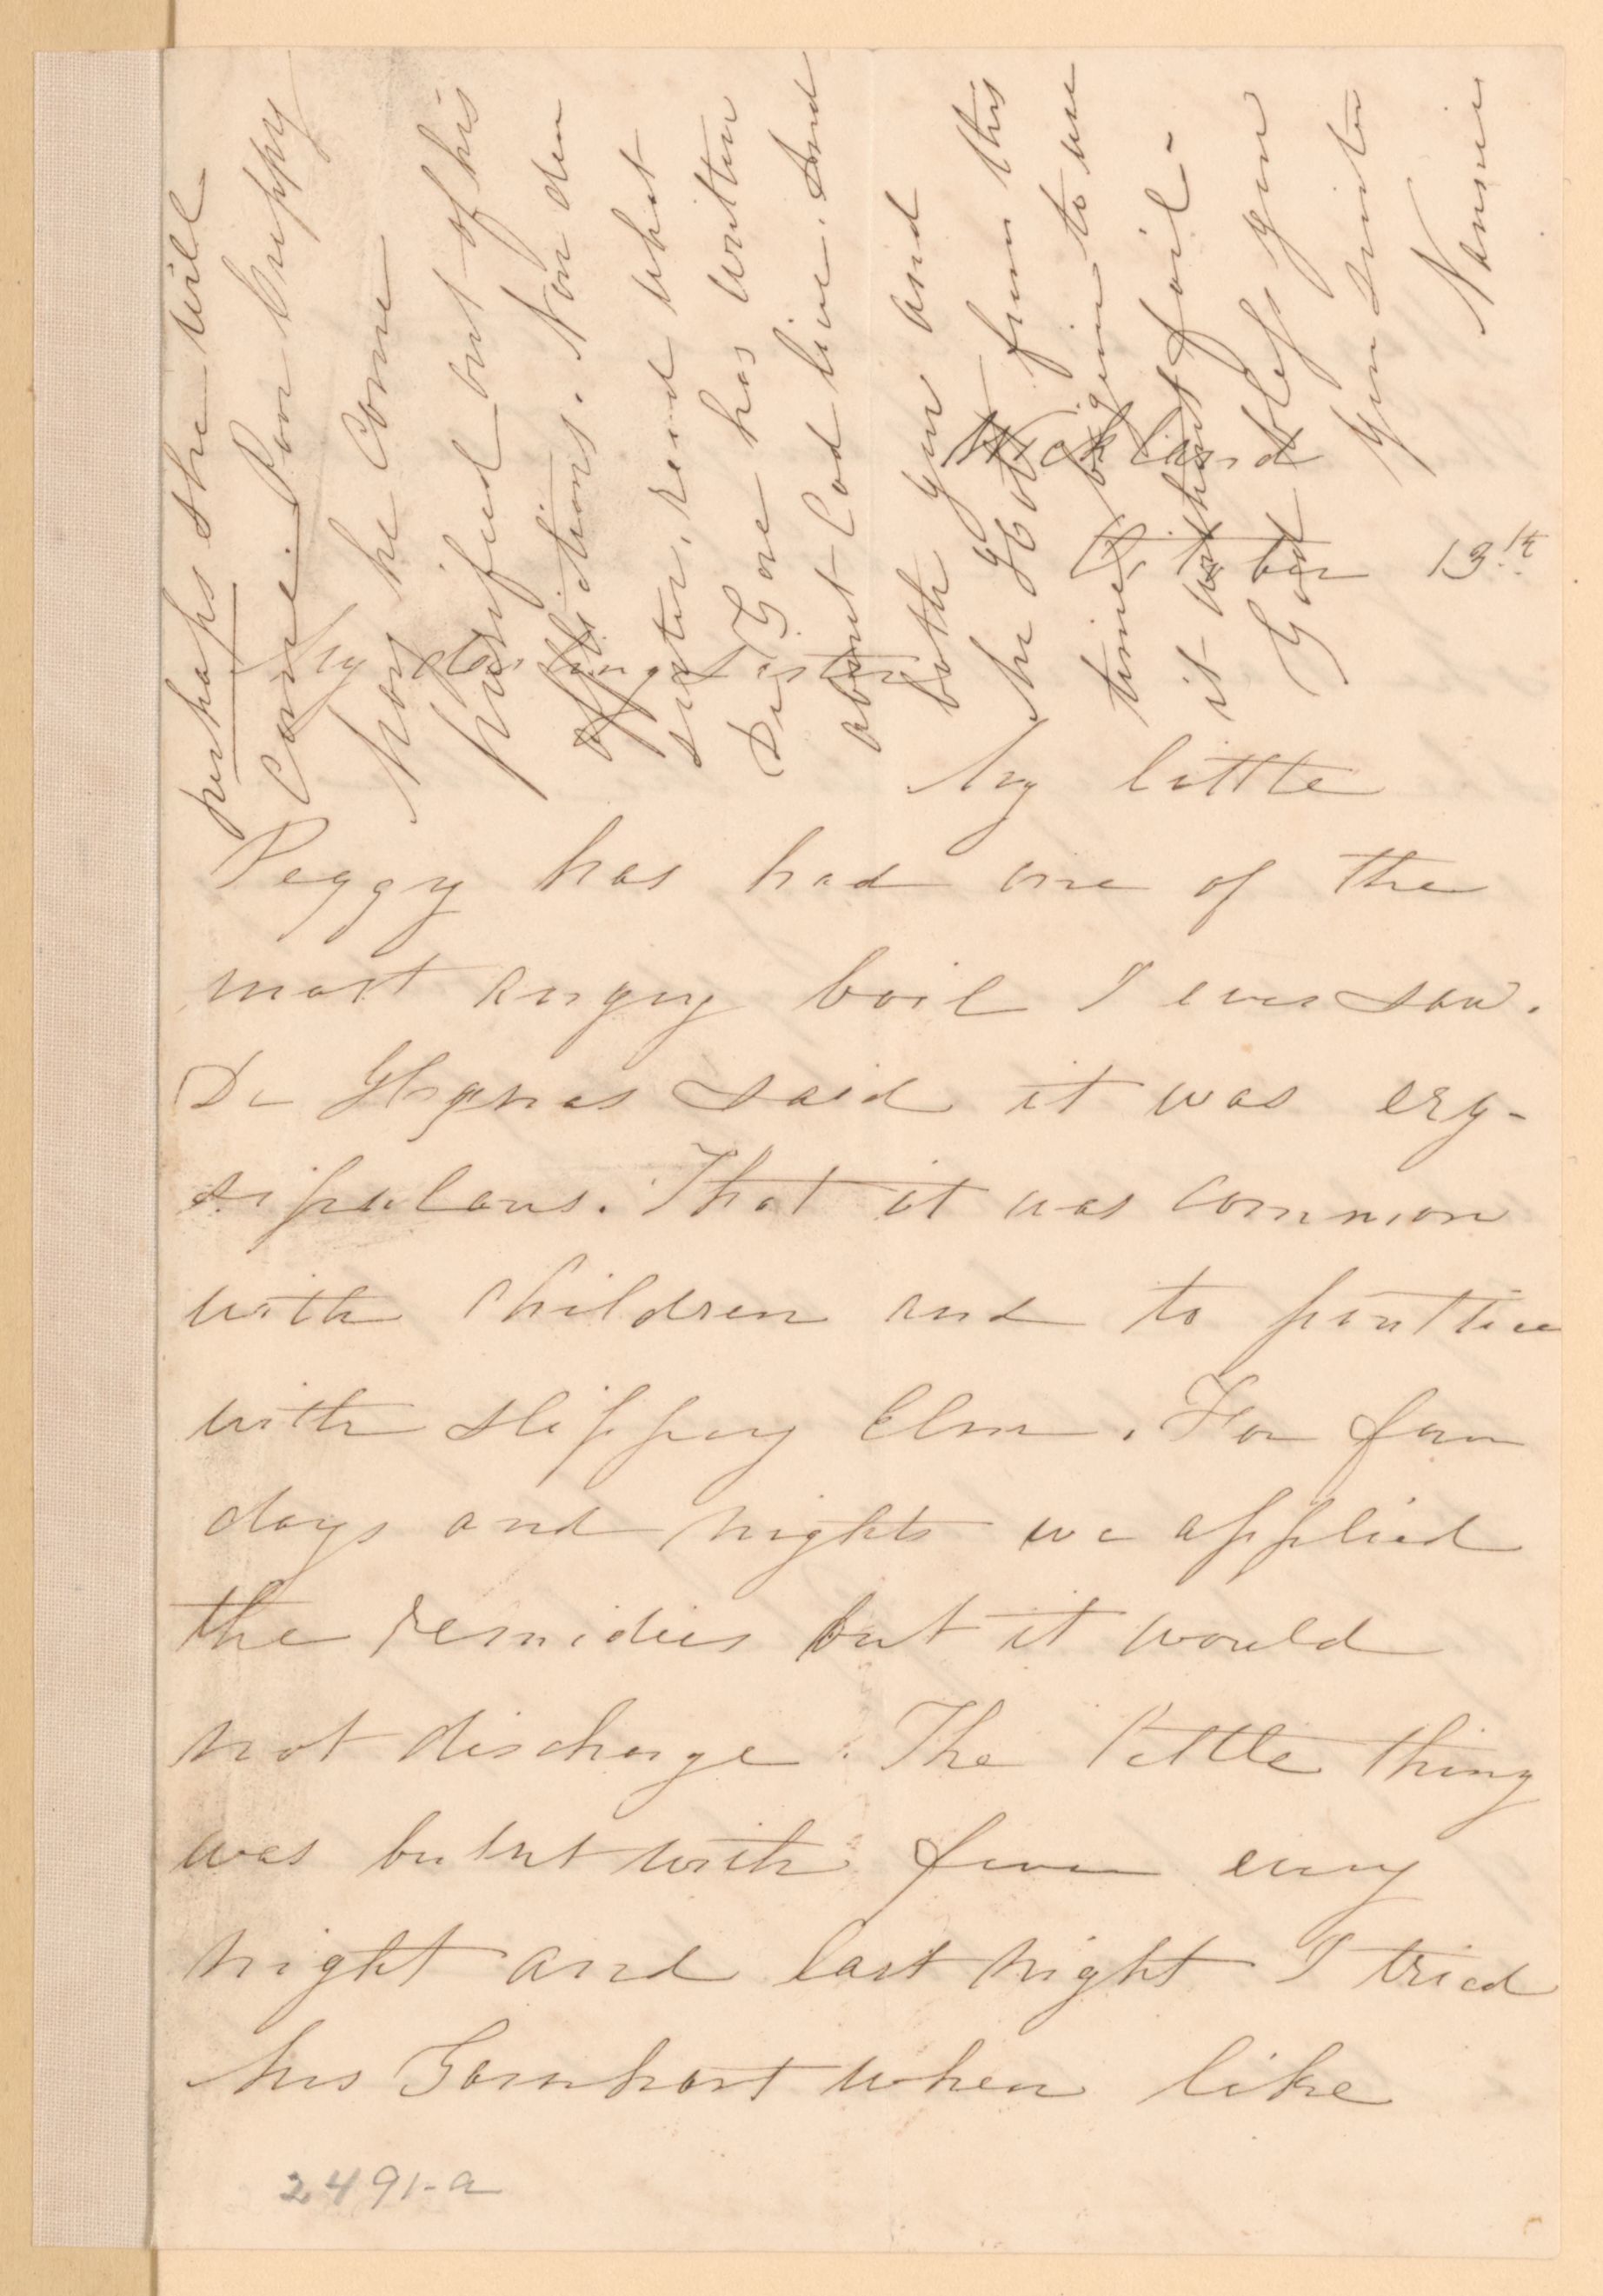 Wickland
October 13th
My darling Sister
My little
Peggy has had one of the
most angry boil I ever saw.
Dr said it was ery-
sipulous. That it was common
with children and to poultice
with slippery Elm. For four
days and nights we applied
the remidies but it would
not discharge. The little thing
was burnt with fever every
night and last night I tried
Mrs Gernhart when like
2491-a
perhaps she will
Come. Poor Guppy
has he Come
purified out of his
afflictions. Now dear
sister, read what
Dr Gore has written
about Cod liver. And
both you and
he got from this
time begin to use
it without fail -
God bless you
Your sister
Nannie